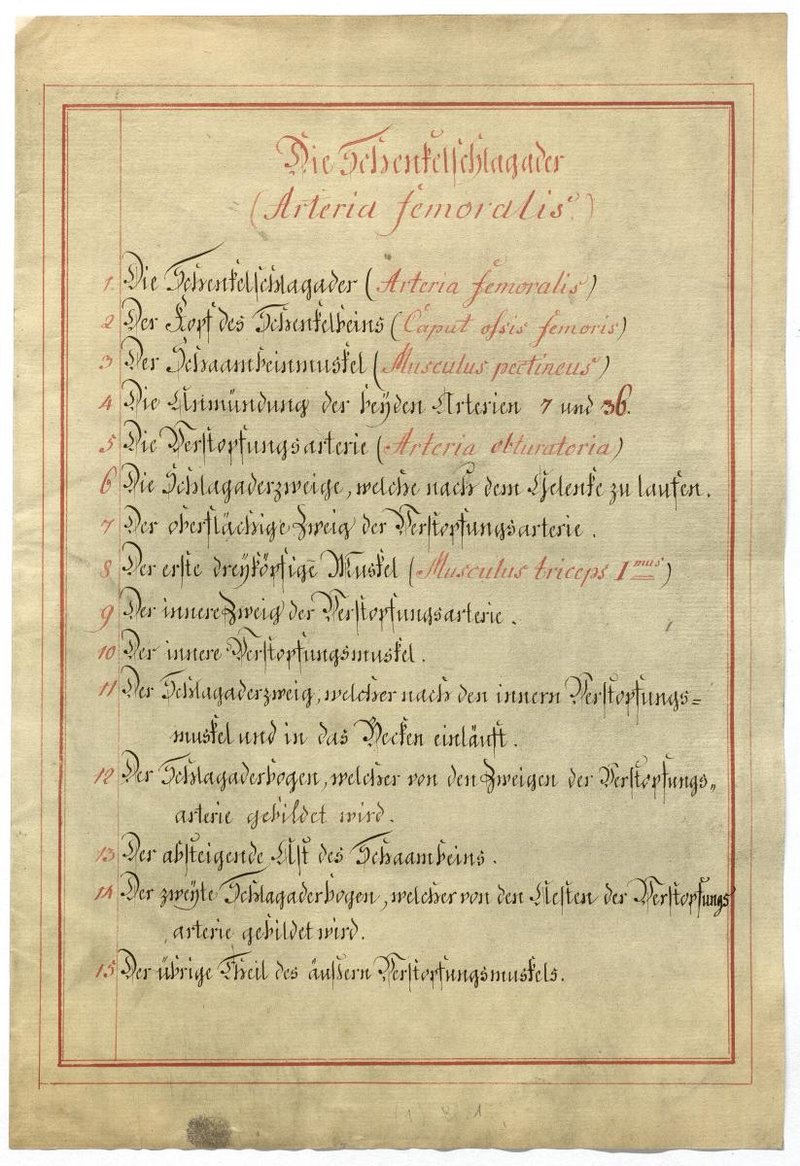 Die Schenkelschlagader
(Arteria femoralis.)
1 Die Schenkelschlagader (Arteria femoralis)
2 Der Kopf des Schenkelbeins (Caput ossis femoris)
3 Der Schaambeinmuskel (Musculus pectineus)
4 Die Anmündung der beÿden Arterien 7 und 36.
5 Die Verstopfungsarterie (Arteria obturatoria)
6 Die Schlagaderzweige, welche nach dem Gelenke zu laufen.
7 Der oberflächige Zweig der Verstopfungsarterie.
8 Der erste dreÿköpfige Muskel (Musculus triceps I mus)
9 Der innere Zweig der Verstopfungsarterie.
10 Der innere Verstopfungsmuskel.
11 Der Schlagaderzweig, welcher nach den innern Verstopfungs=
muskel und in das Becken einläuft.
12 Der Schlagaderbogen, welcher von den Zweigen der Verstopfungs„
arterie gebildet wird.
13 Der absteigende Ast des Schaambeins.
14 Der zweÿte Schlagaderbogen, welcher von den Aesten der Verstopfungs
arterie gebildet wird.
15 Der übrige Theil des äußern Verstopfungsmuskels.